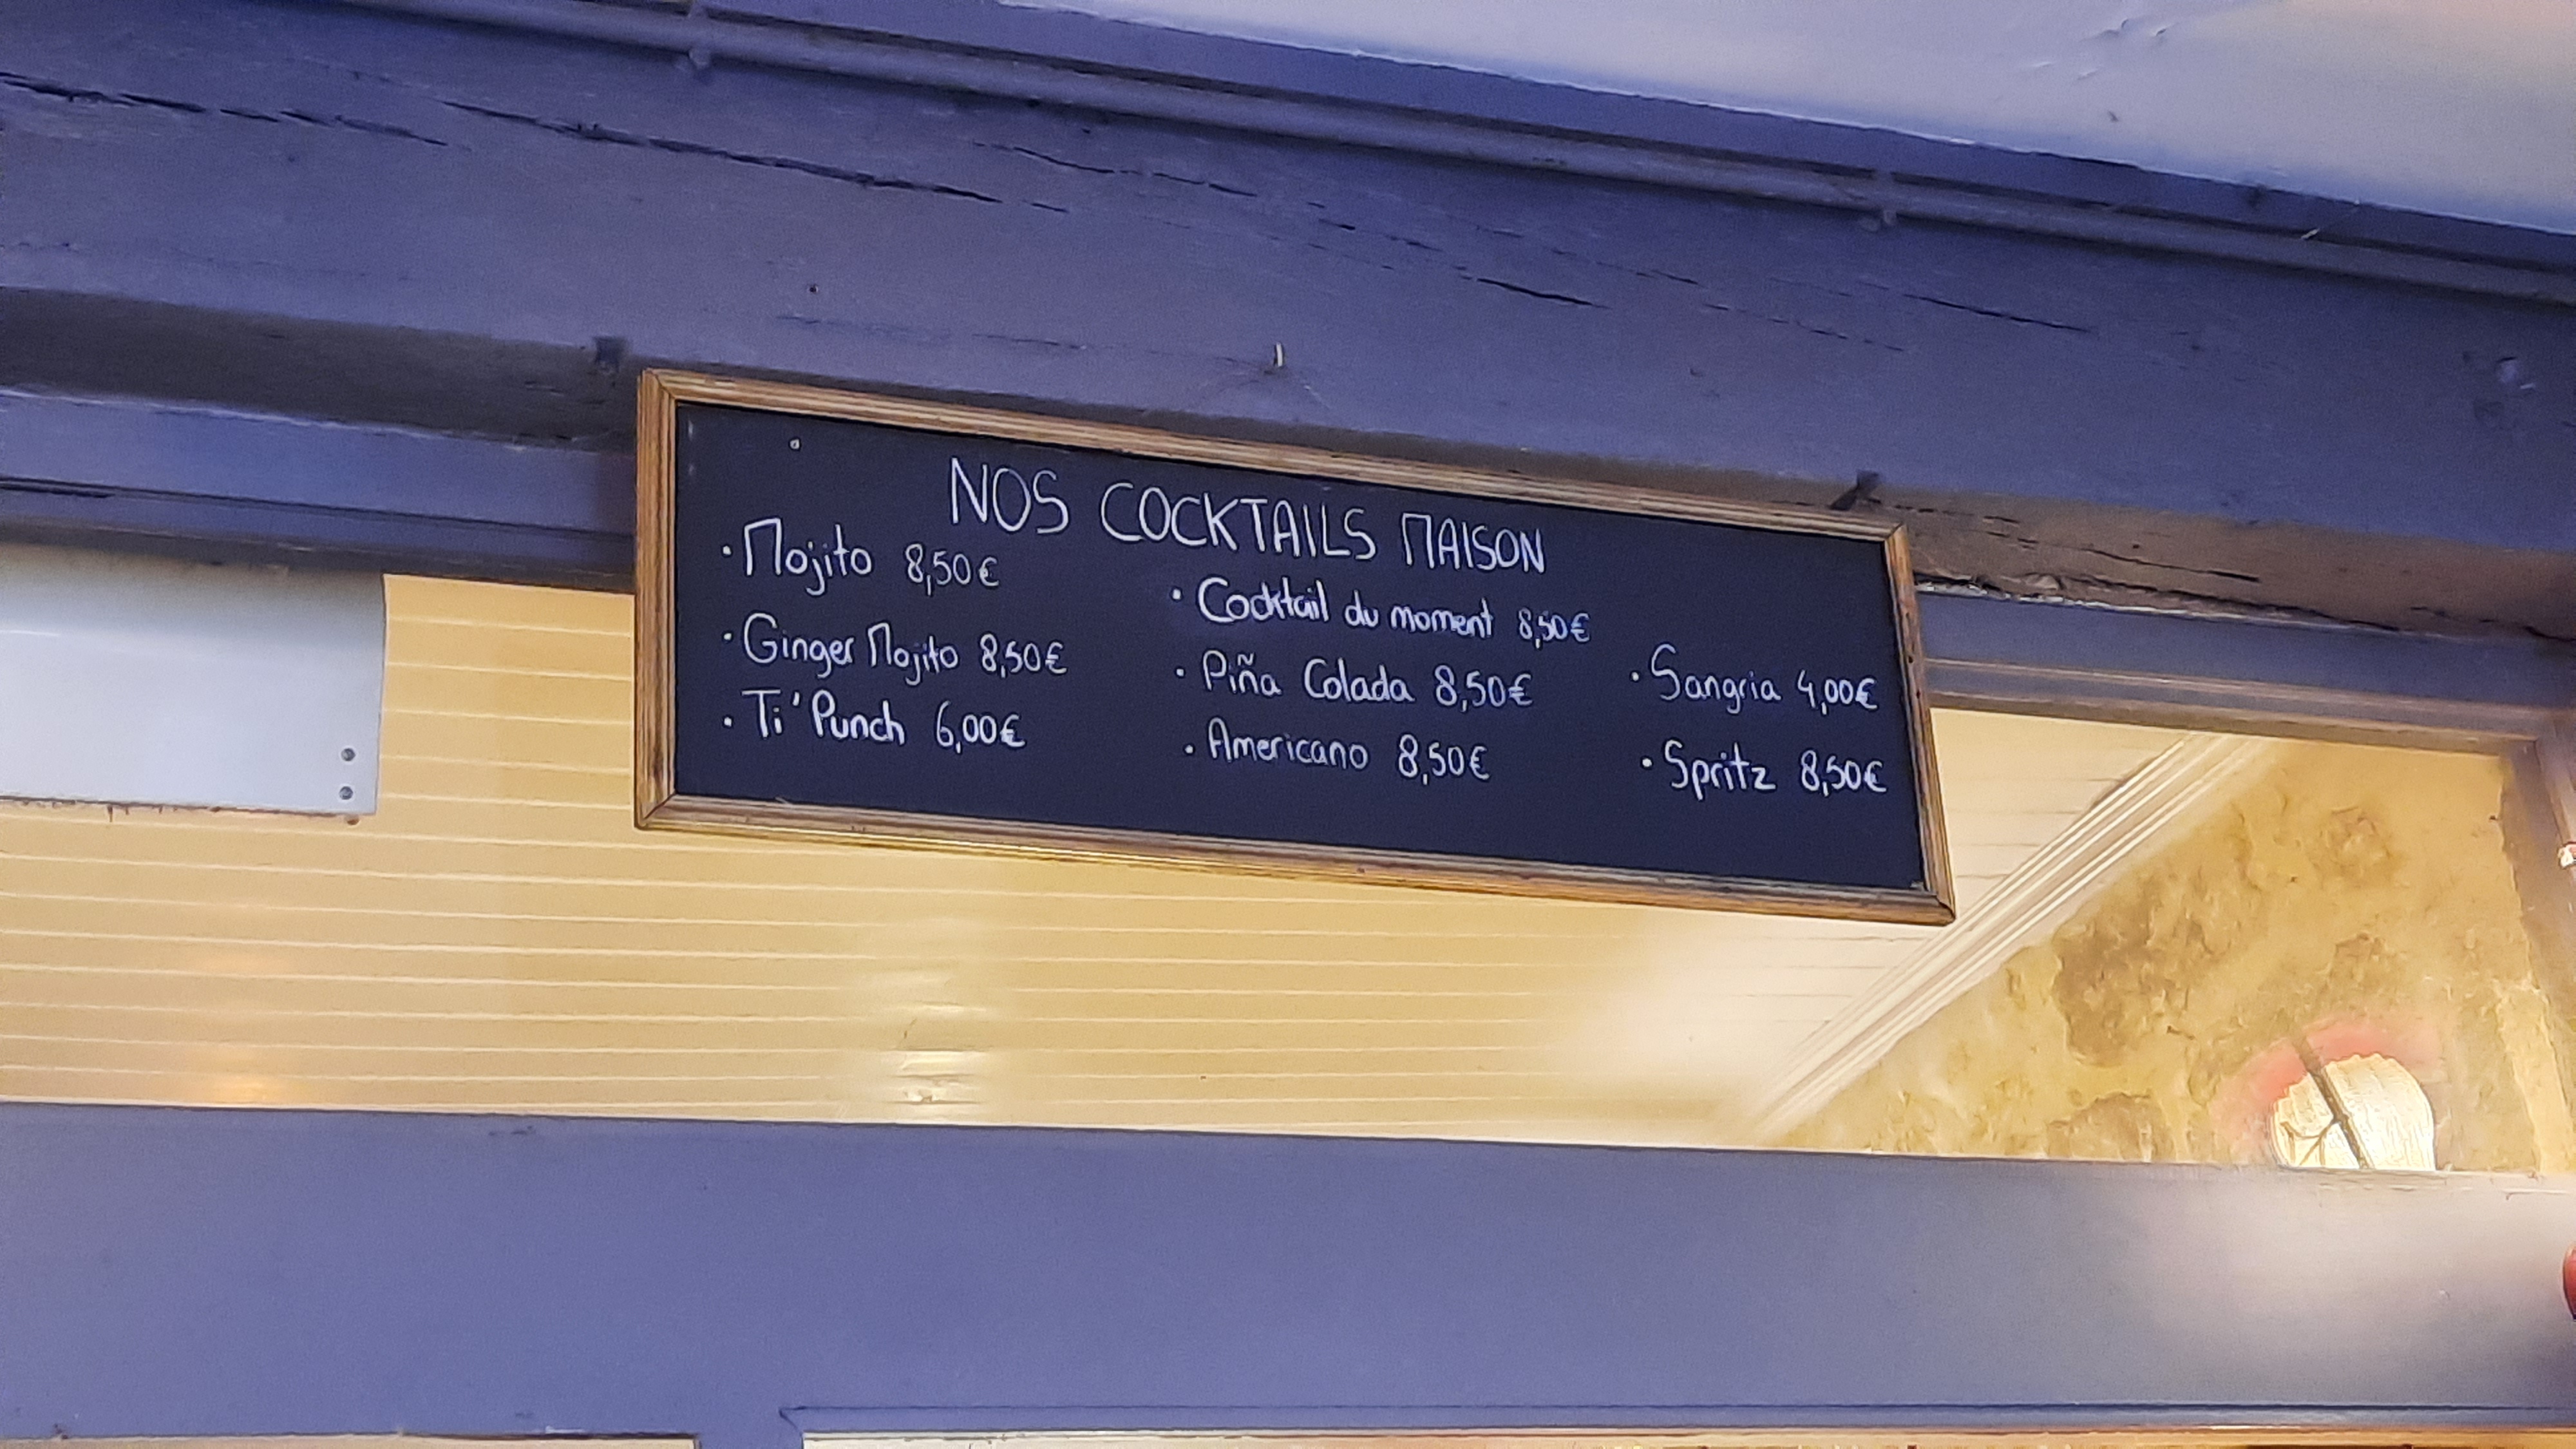 NOS COCKTAILS MAISON
· Mojito 8,50€
· Ginger Mojito 8,50€
· Ti' Punch 6,00€
· Cocktail du moment 8,50€
· Piña Colada 8,50€
· Americano 8,50€
· Sangria 4,00€
· Spritz 8,50€